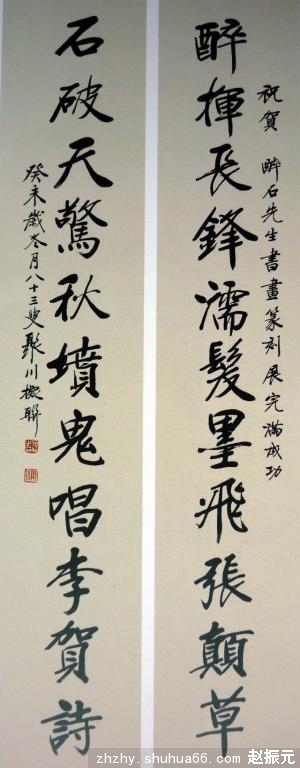 祝賀 醉石先生書畫篆刻展完滿成功
醉揮長鋒濡髮墨飛張顛草
石破天驚秋墳鬼唱李賀詩
癸未歲冬月八十三叟聚川撰聯
zhzhy.shuhua66.com 赵振元